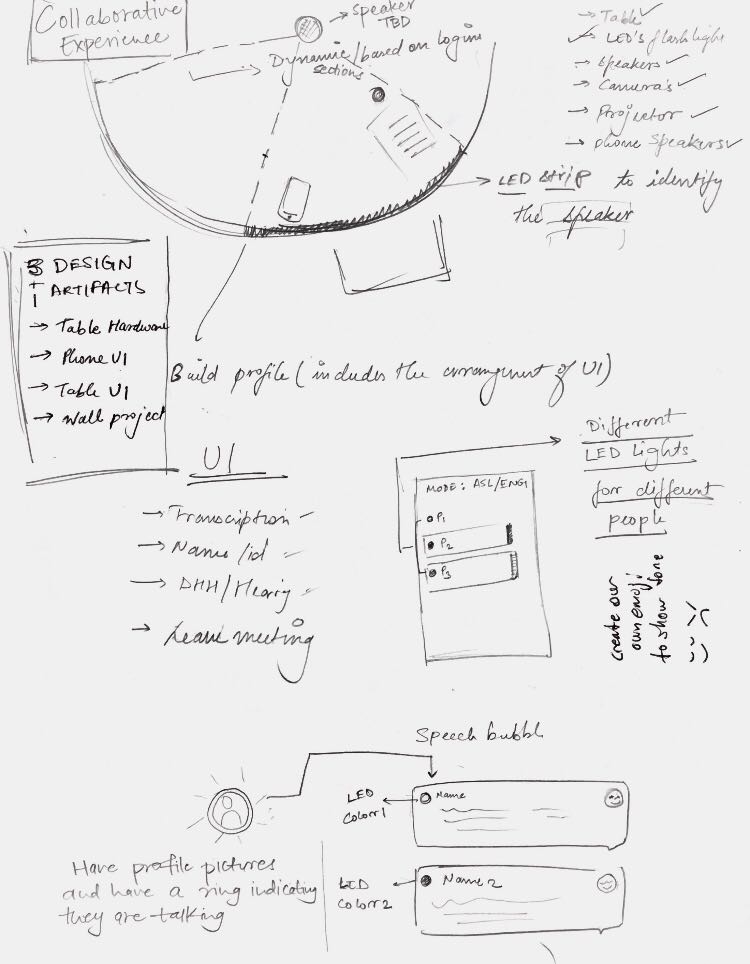 Collaborative
Experience
→ Speaker
TBD
→ Dynamic/based on login
sections
→ Table ✓
→ LED's flash light
→ Speakers ✓
→ Camera's ✓
→ Projector ✓
→ phone Speakers ✓
→ LED strip to identify
the speaker
3 DESIGN
+
1 ARTIFACTS
→ Table Hardware
→ Phone UI
→ Table UI
→ Wall project
Build profile (includes the arrangement of UI)
UI
→ Transcription
→ Name/id
→ DHH/Hearig
→ Leave meeting
Different
LED Lights
for different
people
MODE: ASL/ENG
P1
P2
P3
create our
own emoji
to show tone
:(
:)
Speech bubbl
LED
Color 1
Name
LED
Color 2
Name 2
Have profile pictures
and have a ring indicating
they are talking